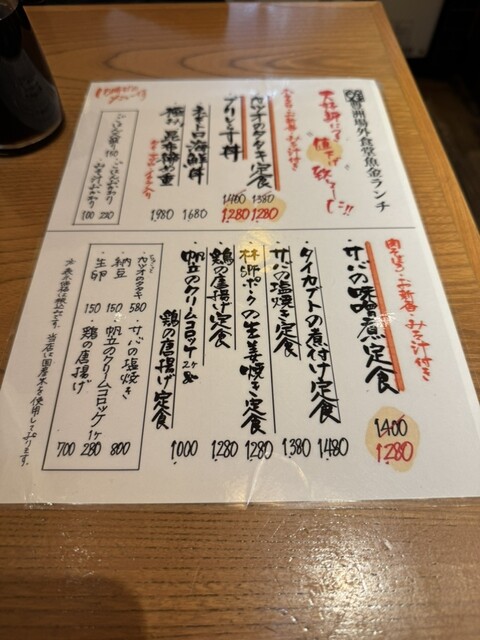 豊洲場外食堂魚金ランチ
大好評につき値下げ致しました!!
小そばつゆ お新香 みそ汁付き
カツオのタタキ定食 1380 1280
ブリトロ丼 1400 1280
ネギトロ海鮮丼 1680
昆布締め重 1980
ごはん大盛り 100
みそ汁おかわり 200
肉そぼろ・お新香・みそ汁付き
サバの味噌煮定食 1400 1280
タイカブトの煮付け定食 1480
サバの塩焼き定食 1380
林SPFポークの生姜焼き定食 1280
鶏の唐揚げ定食 1280
帆立のクリームコロッケ2ヶ&鶏の唐揚げ定食 1000
・カツオのタタキ 580
・納豆 150
・生卵 150
・サバの塩焼き 800
・帆立のクリームコロッケ1ヶ 280
・鶏の唐揚げ 700
☆表示価格は税込みです。当店は国産米を使用しております。